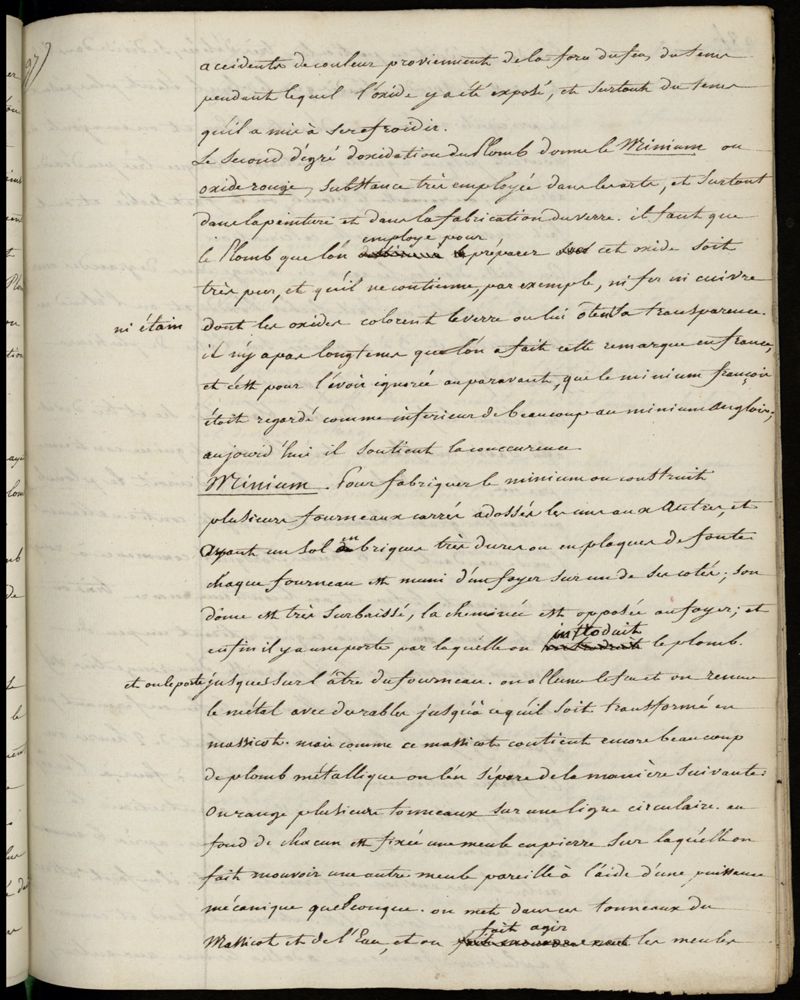 97)
accidents de couleur proviennent de la force du feu, du tems
pendant lequel l'oxide y a été exposé, et surtout du tems
qu'il a mis à se refroidir.
Le second dégré d'oxidation du Plomb donne le Minium ou
oxide rouge, substance très employée dans les arts, et surtout
dans la peinture et dans la fabrication du verre. il faut que
employe pour
le Plomb que l'on préparer cet oxide soit
très pur, et qu'il ne contienne, par exemple, ni fer ni cuivre
ni étain dont les oxides colorent le verre ou lui ôtent sa transparence.
il n'y a pas longtems que l'on a fait cette remarque en france,
et c'est pour l'avoir ignorée auparavant, que le minium françois
étoit regardé comme inferieur de beaucoup au minium Anglois;
aujourd'hui il soutient la concurrence
Minium. Pour fabriquer le minium on construit
plusieurs fourneaux carrés adossés les uns aux Autres, et
ayant un sol en briques très dures ou en plaques de fonte
chaque fourneau est muni d'un foyer sur un de ses cotés; son
dôme est très surbaissé, la cheminée est opposée au foyer; et
introduit
enfin il y a une porte par laquélle on le plomb.
et on le porte jusques sur l'âtre du fourneau. on allume le feu et on remue
le métal avec des rables jusqu'à ce qu'il soit transformé en
massicot. mais comme ce massicot contient encore beaucoup
de plomb métallique on l'en sépare de la manière suivante:
On range plusieurs tonneaux sur une ligne circulaire. au
fond de chacun est fixée une meule en pierre sur laquélle on
fait mouvoir une autre meule pareille à l'aide d'une puissance
mécanique quelconque. on met dans ces tonneaux du
fait agir
Massicot et de l'Eau, et on les meules